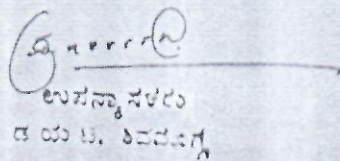 ಉಪನ್ಯಾಸಕರು
ಡಯಟ. ಶಿವಮೊಗ್ಗ